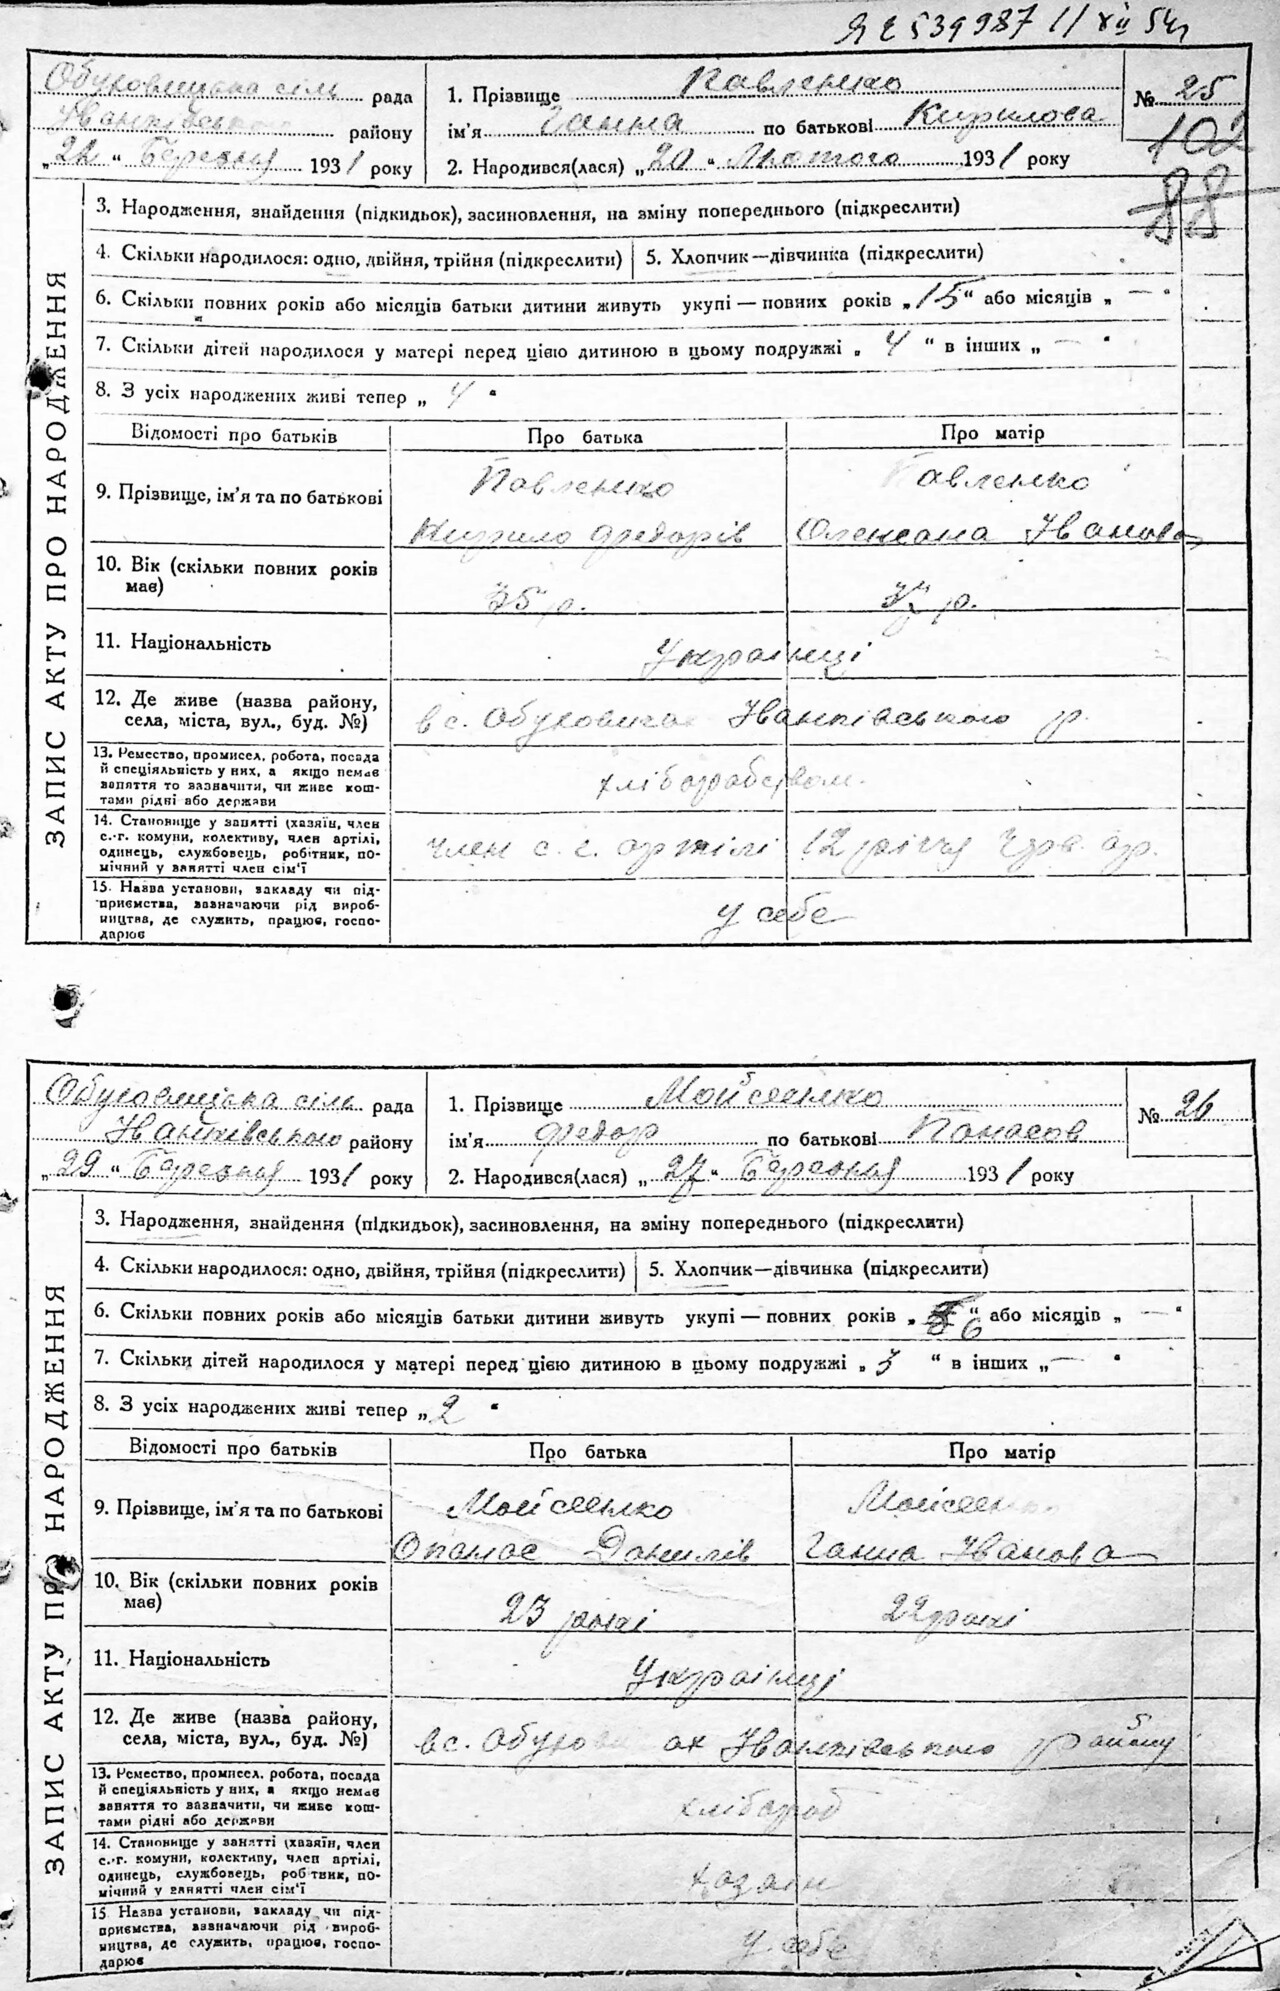 ЯЕ 539987 11/XII 54 г
Обуховицька сіль рада
Іванківського району
„ “ Березня 1931 року
1. Прізвище Павленко
ім'я Ганна по батькові Кирилова
2. Народився(лася) „20“ Лютого 1931 року
№ 25
102
88
ЗАПИС АКТУ ПРО НАРОДЖЕННЯ
3. Народження, знайдення (підкидьок), засиновлення, на зміну попереднього (підкреслити)
4. Скільки народилося: одно, двійня, трійня (підкреслити)
5. Хлопчик—дівчинка (підкреслити)
6. Скільки повних років або місяців батьки дитини живуть укупі — повних років „15“ або місяців „—“
7. Скільки дітей народилося у матері перед цією дитиною в цьому подружжі „4“ в інших „—“
8. З усіх народжених живі тепер „4“
Відомості про батьків Про батька Про матір
9. Прізвище, ім'я та по батькові
Павленко Павленко
Кирило Федорів Олександра Іванова
10. Вік (скільки повних років
має)
35 р. р.
11. Національність Українці
12. Де живе (назва району,
села, міста, вул., буд. №)
в с. Обуховичах Іванківського р.
13. Ремество, промисел, робота, посада
й спеціяльність у них, а якщо немає
заняття то зазначити, чи живе кош-
тами рідні або держави
хліборобством.
14. Становище у занятті (хазяїн, член
с.-г. комуни, колективу, член артілі,
одинець, службовець, робітник, по-
мічний у занятті член сім'ї
член с. г. артілі 12 річчя Чрв. ар.
15. Назва установи, закладу чи під-
приємства, зазначаючи рід вироб-
ництва, де служить, працює, госпо-
дарює
у себе
Обуховицька сіль рада
Іванківського району
„29“ Березня 1931 року
1. Прізвище Мойсеенко
ім'я Федор по батькові Панасов
2. Народився(лася) „27“ Березня 1931 року
№ 26
ЗАПИС АКТУ ПРО НАРОДЖЕННЯ
3. Народження, знайдення (підкидьок), засиновлення, на зміну попереднього (підкреслити)
4. Скільки народилося: одно, двійня, трійня (підкреслити)
5. Хлопчик—дівчинка (підкреслити)
6. Скільки повних років або місяців батьки дитини живуть укупі — повних років „6“ або місяців „—“
7. Скільки дітей народилося у матері перед цією дитиною в цьому подружжі „3“ в інших „—“
8. З усіх народжених живі тепер „2“
Відомості про батьків Про батька Про матір
9. Прізвище, ім'я та по батькові
Мойсеенко Мойсеенко
Опанас Данилів Ганна Іванова
10. Вік (скільки повних років
має)
23 рокі 22 рокі
11. Національність Українці
12. Де живе (назва району,
села, міста, вул., буд. №)
в с. Обуховичах Іванківського району
13. Ремество, промисел, робота, посада
й спеціяльність у них, а якщо немає
заняття то зазначити, чи живе кош-
тами рідні або держави
хлібороб
14. Становище у занятті (хазяїн, член
с.-г. комуни, колективу, член артілі,
одинець, службовець, робітник, по-
мічний у занятті член сім'ї
хазаїн
15. Назва установи, закладу чи під-
приємства, зазначаючи рід вироб-
ництва, де служить, працює, госпо-
дарює
у себе